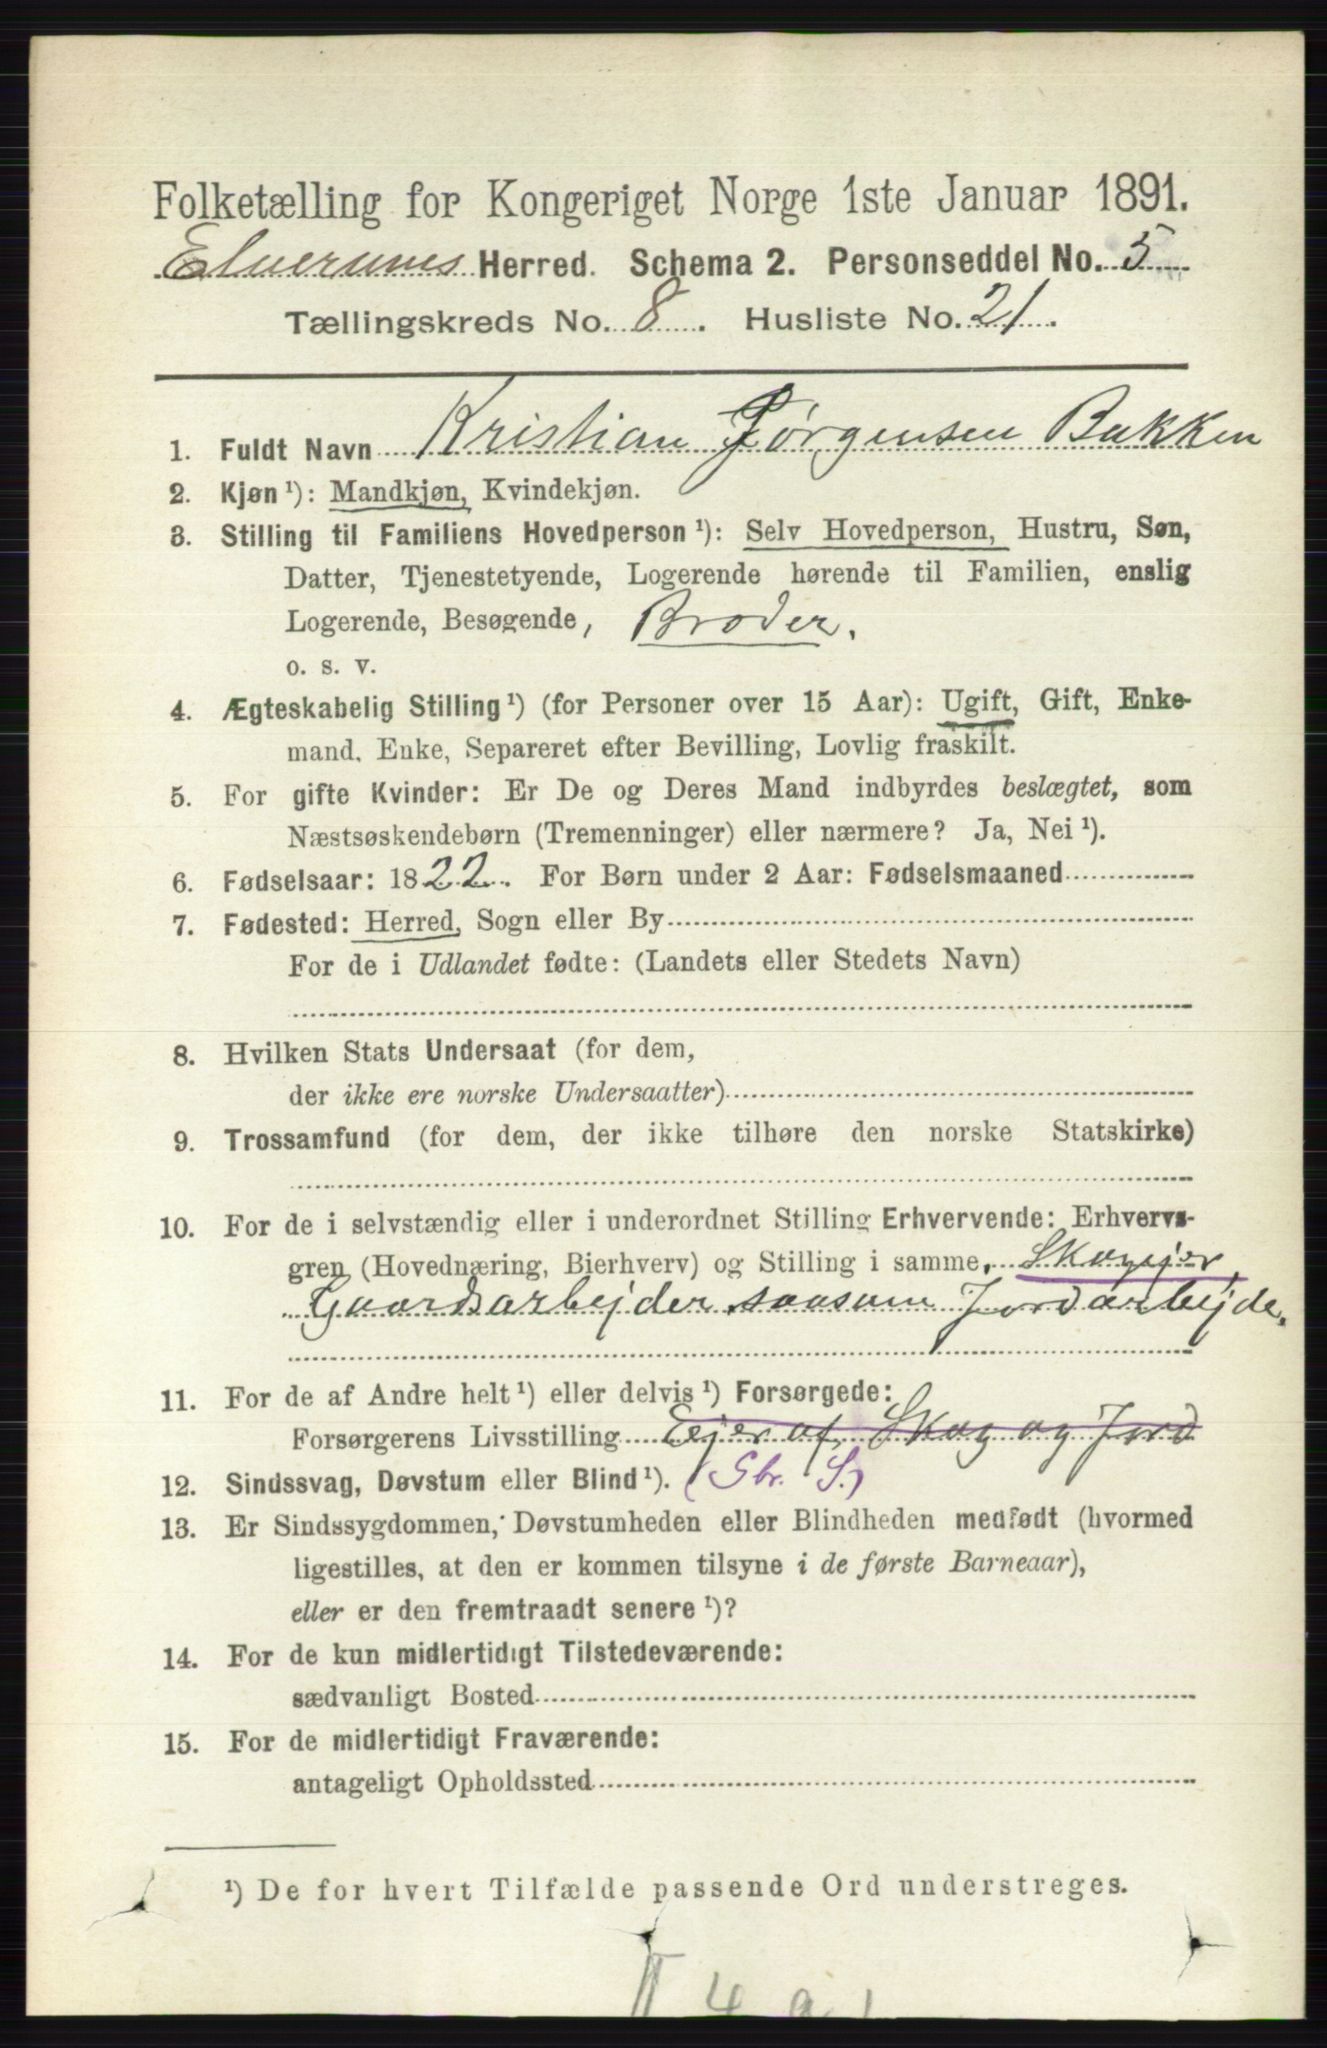 Folketælling for Kongeriget Norge 1ste Januar 1891.
Elverums Herred. Schema 2. Personseddel No. 5
Tællingskreds No. 8. Husliste No. 21.
1. Fuldt Navn Kristian Jørgensen Bakken
2. Kjøn¹): Mandkjøn, Kvindekjøn.
3. Stilling til Familiens Hovedperson¹): Selv Hovedperson, Hustru, Søn,
Datter, Tjenestetyende, Logerende hørende til Familien, enslig
Logerende, Besøgende, Broder.
o. s. v.
4. Ægteskabelig Stilling¹) (for Personer over 15 Aar): Ugift, Gift, Enke-
mand, Enke, Separeret efter Bevilling, Lovlig fraskilt.
5. For gifte Kvinder: Er De og Deres Mand indbyrdes beslægtet, som
Næstsøskendebørn (Tremenninger) eller nærmere? Ja, Nei¹).
6. Fødselsaar: 1822. For Børn under 2 Aar: Fødselsmaaned
7. Fødested: Herred, Sogn eller By
For de i Udlandet fødte: (Landets eller Stedets Navn)
8. Hvilken Stats Undersaat (for dem,
der ikke ere norske Undersaatter)
9. Trossamfund (for dem, der ikke tilhøre den norske Statskirke)
10. For de i selvstændig eller i underordnet Stilling Erhvervende: Erhvervs-
gren (Hovednæring, Bierhverv) og Stilling i samme. Skogejer
Gaardsarbejder saasom Jordarbejde.
11. For de af Andre helt¹) eller delvis¹) Forsørgede:
Forsørgerens Livsstilling Ejer af Skog og Jord
12. Sindssvag, Døvstum eller Blind¹). (Gbr. S.)
13. Er Sindssygdommen, Døvstumheden eller Blindheden medfødt (hvormed
ligestilles, at den er kommen tilsyne i de første Barneaar),
eller er den fremtraadt senere¹)?
14. For de kun midlertidigt Tilstedeværende:
sædvanligt Bosted
15. For de midlertidigt Fraværende:
antageligt Opholdssted
¹) De for hvert Tilfælde passende Ord understreges.